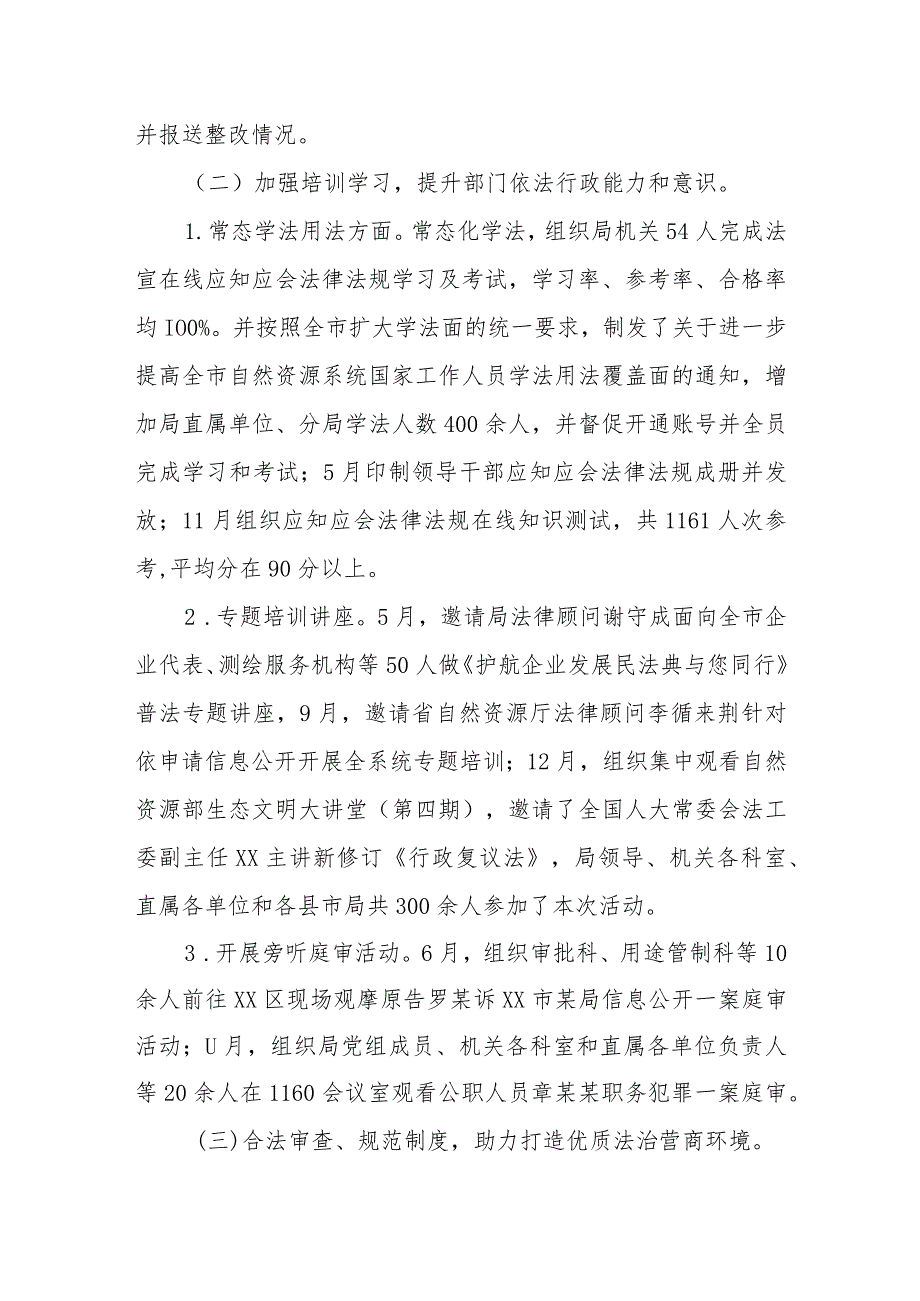 并报送整改情况。
（二）加强培训学习，提升部门依法行政能力和意识。
1.常态学法用法方面。常态化学法，组织局机关54人完成法
宣在线应知应会法律法规学习及考试，学习率、参考率、合格率
均IOO%。并按照全市扩大学法面的统一要求，制发了关于进一步
提高全市自然资源系统国家工作人员学法用法覆盖面的通知，增
加局直属单位、分局学法人数400余人，并督促开通账号并全员
完成学习和考试；5月印制领导干部应知应会法律法规成册并发
放；11月组织应知应会法律法规在线知识测试，共1161人次参
考,平均分在90分以上。
2.专题培训讲座。5月，邀请局法律顾问谢守成面向全市企
业代表、测绘服务机构等50人做《护航企业发展民法典与您同行》
普法专题讲座，9月，邀请省自然资源厅法律顾问李循来荆针对
依申请信息公开开展全系统专题培训；12月，组织集中观看自然
资源部生态文明大讲堂（第四期），邀请了全国人大常委会法工
委副主任XX主讲新修订《行政复议法》，局领导、机关各科室、
直属各单位和各县市局共300余人参加了本次活动。
3.开展旁听庭审活动。6月，组织审批科、用途管制科等10
余人前往XX区现场观摩原告罗某诉XX市某局信息公开一案庭审
活动；U月，组织局党组成员、机关各科室和直属各单位负责人
等20余人在1160会议室观看公职人员章某某职务犯罪一案庭审。
(三)合法审查、规范制度，助力打造优质法治营商环境。